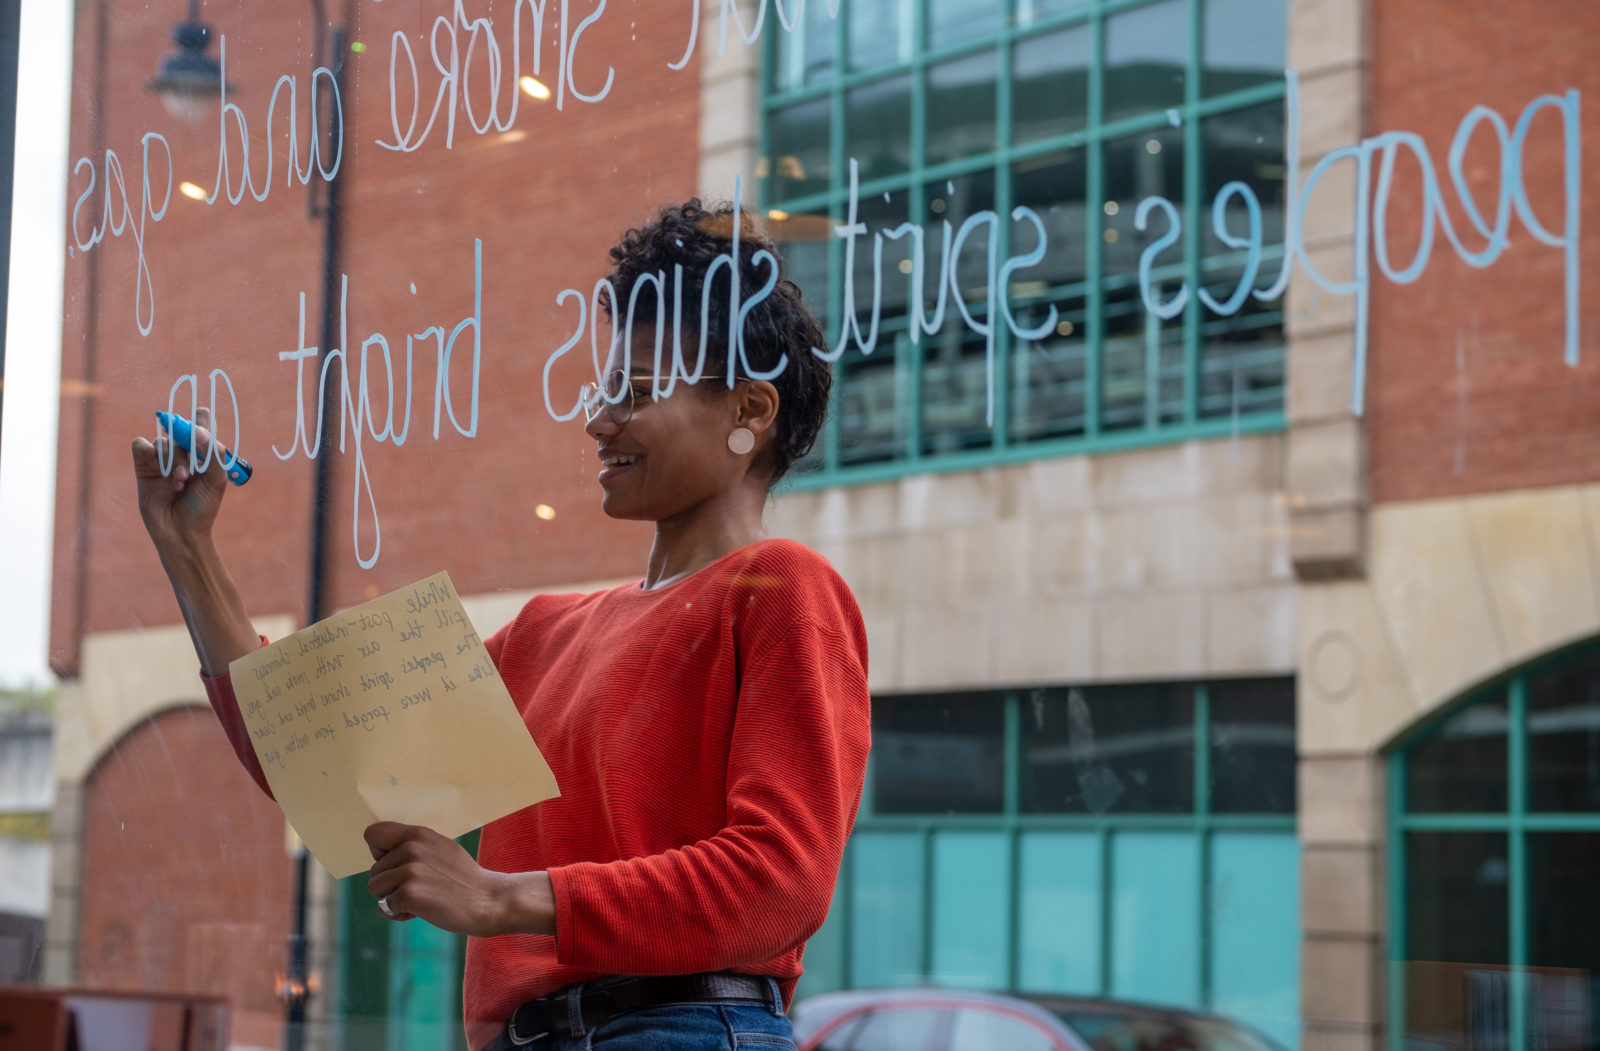 smoke and gas,
peoples spirit shines bright an
While post-industrial chimneys
fill the air with smoke and gas,
The people's spirit shines bright and clear
Like it were forged from molten